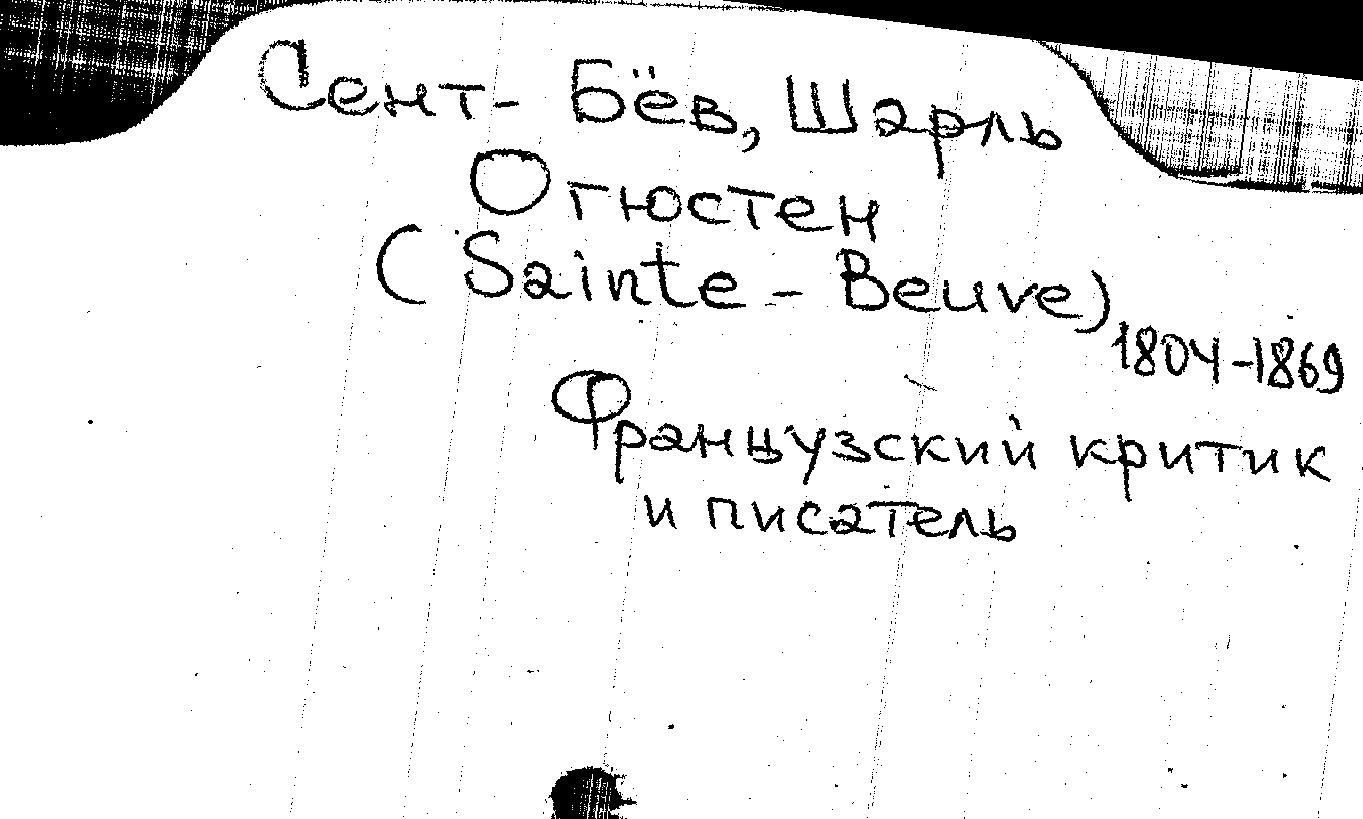 Сент-Бёв, Шарль
Огюстен
(Sainte-Beuve)
1804-1869
Французский критик
и писатель